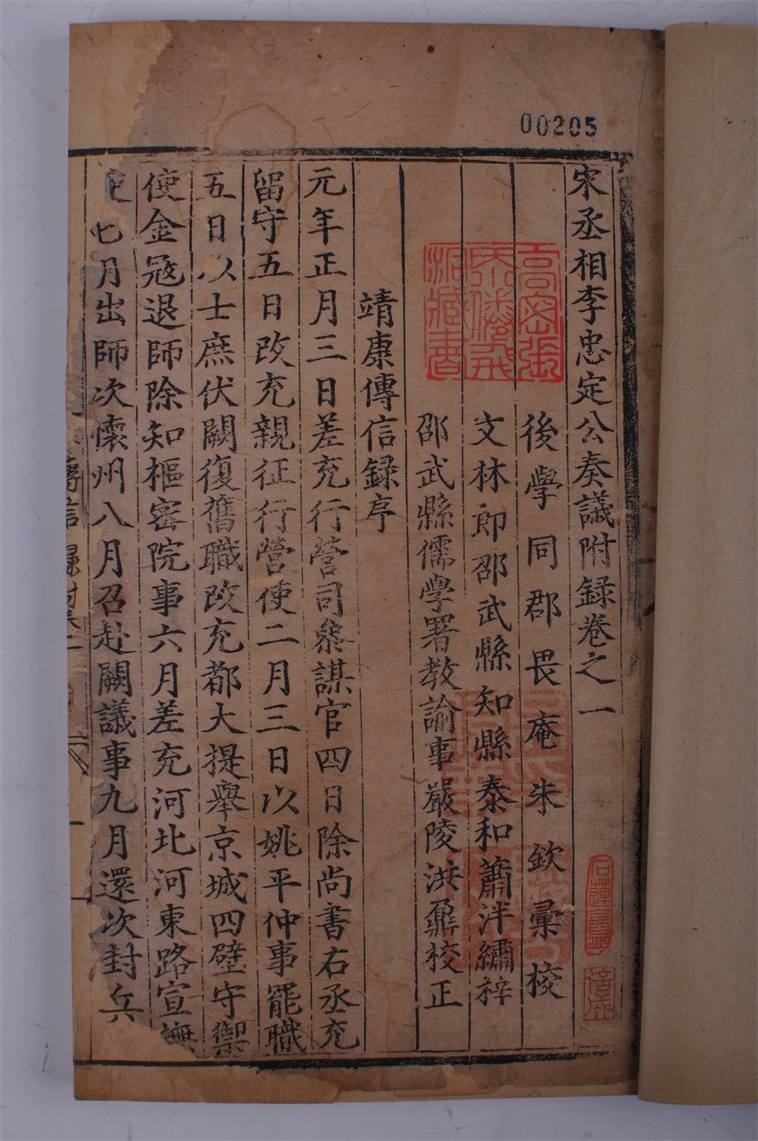 00205
宋丞相李忠定公奏議附録卷之一
後學同郡畏庵朱欽彙校
文林郎邵武縣知縣泰和蕭泮繡梓
邵武縣儒學署教諭事嚴陵洪鼐校正
靖康傳信録序
元年正月三日差充行營司叅謀官四日除尚書右丞充
留守五日改充親征行營使二月三日以姚平仲事罷職
五日以士庶伏闕復舊職改充都大提舉京城四壁守禦
使金寇退師除知樞密院事六月差充河北河東路宣撫
使七月出師次懷州八月召赴闕議事九月還次封兵
傳信録附卷一